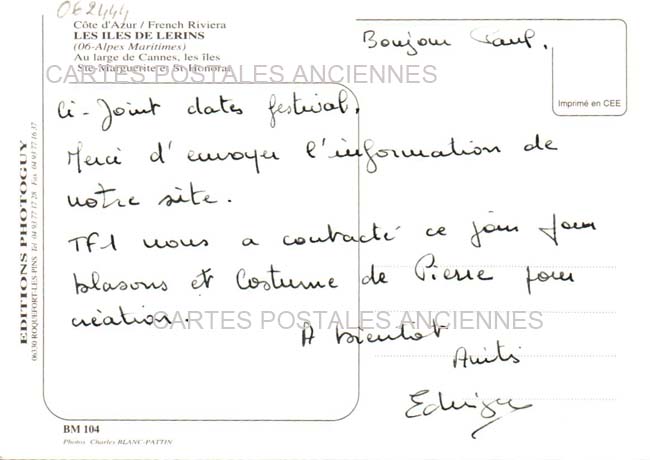 062444
Côte d'Azur / French Riviera
LES ILES DE LERINS
(06-Alpes Maritimes)
Au large de Cannes, les îles
Ste-Marguerite et St Honorat
CARTES POSTALES ANCIENNES
Bonjour Paul,
Imprimé en CEE
Ci-Joint dates festival.
Merci d'envoyer l'information de
notre site.
TF1 nous a contacté ce jour pour
blasons et Costume de Pierre pour
création.
CARTES POSTALES ANCIENNES
A bientot
Amitiés
Edwige
EDITIONS PHOTOGUY
06330 ROQUEFORT-LES-PINS Tél. 04 93 77 17 28 - Fax 04 93 77 16 37
BM 104
Photos Charles BLANC-PATTIN